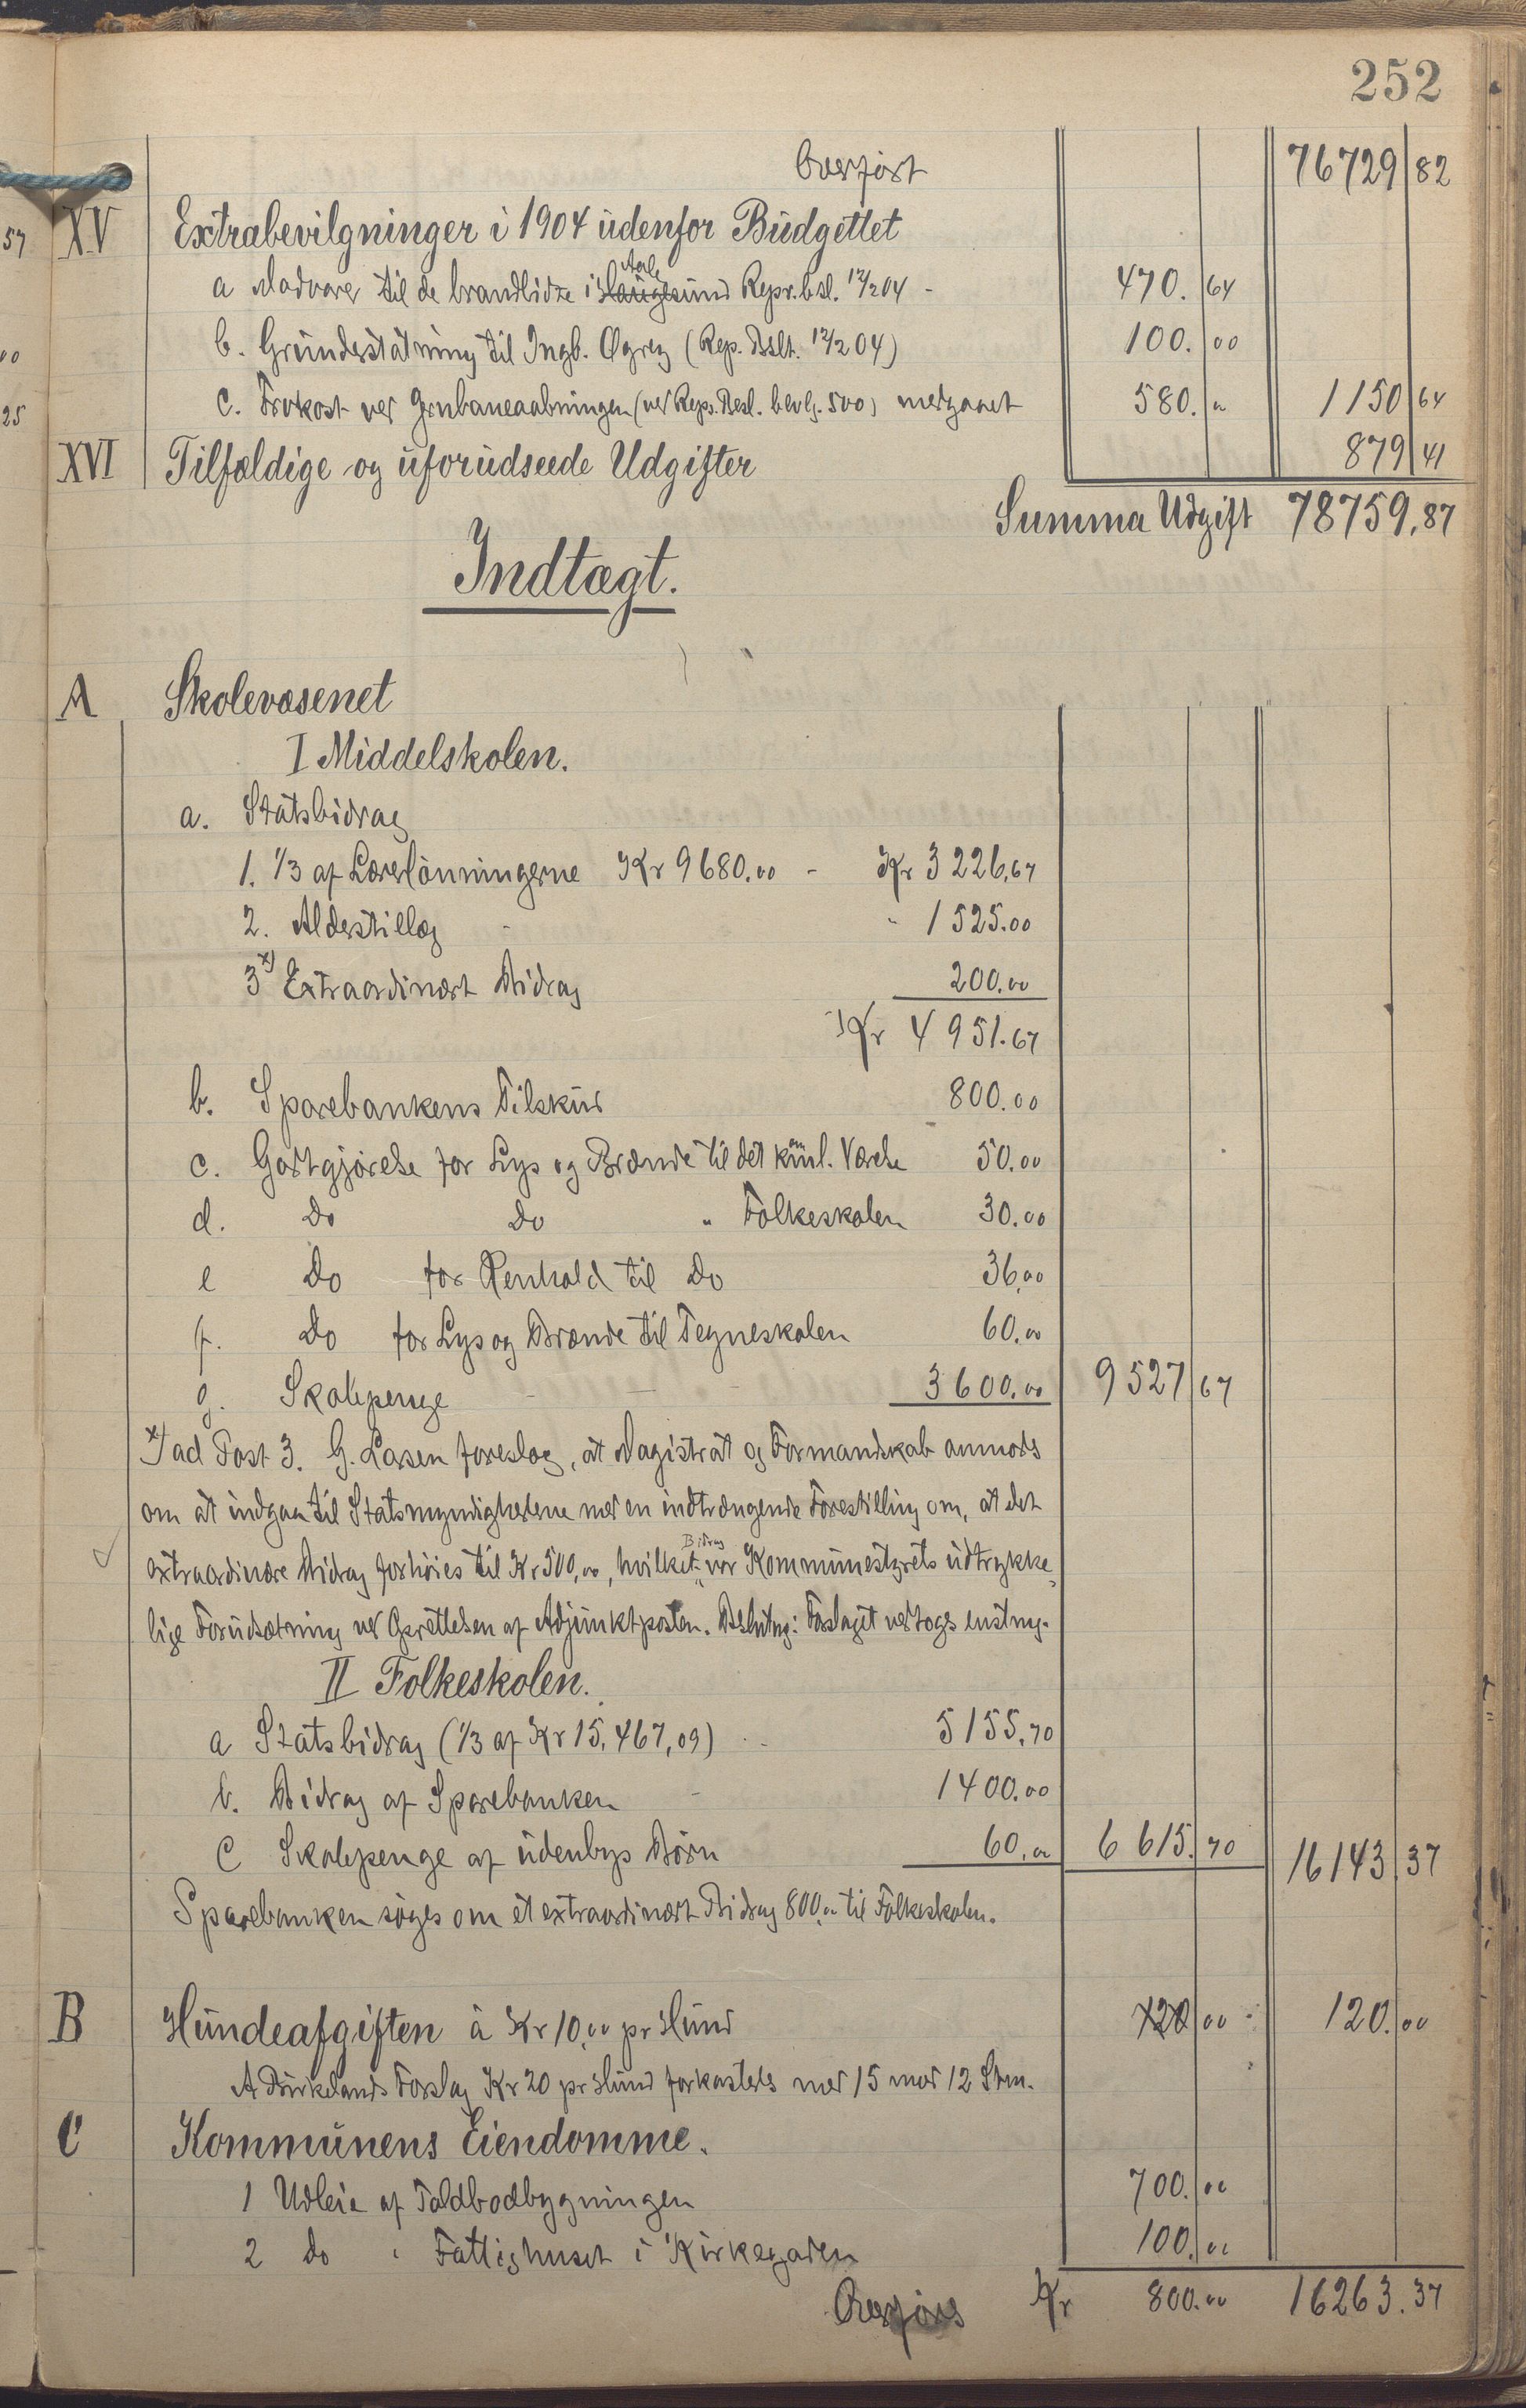 252
Overført 76729 82
57 XV Extrabevilgninger i 1904 udenfor Budgettet
a Madvarer til de brandlidte i Haugesund Aale Repr.bsl. 12/2 04 - 470. 64
00 b. Grundstøtning til Ingb. Øgrey (Rep. Bslt. 12/2 04) 100. 00
25 c. Frokost ved Grubaneaabningen (ved Repr. Besl. bevlg. 500) medgaaet 580. " 1150 64
XVI Tilfældige og uforudseede Udgifter 879 41
Summa Udgift 78759,87
Indtægt.
A Skolevæsenet
I Middelskolen.
a. Statsbidrag
1. 1/3 af Lærerlønningerne Kr 9680.00 - Kr 3226,67
2. Alderstillæg - " 1525.00
3 x) Extraordinært Bidrag 200.00
Kr 4951.67
b. Sparebankens Tilskud 800.00
c. Godtgjørelse for Lys og Brænde til det kom. Værelse 50.00
d. Do Do " Folkeskolen 30.00
e Do for Renhold til Do 36,00
f. Do for Lys og Brænde til Tegneskolen 60.00
g. Skolepenge - - - 3600.00 9527 67
x) ad Post 3. G. Larsen foreslog, at Magistrat og Formandskab anmodes
om at indgaa til Statsmyndighederne med en indtrængende Forestilling om, at det
extraordinære Bidrag forhøies til Kr 500,00, hvilket Bidrag var Kommunestyrets udtrykke-
lige Forudsætning ved Oprettelsen af Adjunktposten. Beslutng: Forslaget vedtoges enstmg.
II Folkeskolen.
a Statsbidrag (1/3 af Kr 15,467,09) 5155,70
b. Bidrag af Sparebanken - 1400.00
C Skolepenge af udenbys Børn 60.00 6615. 70 16143. 37
Sparebanken søges om et extraordinært Bidrag 800,00 til Folkeskolen.
B Hundeafgiften à Kr 10,00 pr Hund 120 00 120. 00
A Birkelands Forslag Kr 20 pr Hund forkastedes med 15 mod 12 Stm.
C Kommunens Eiendomme.
1 Udleie af Toldbodbygningen 700. 00
2 do " Fattighuset i Kirkegaden 100. 00
Overføres Kr 800.00 16263.37